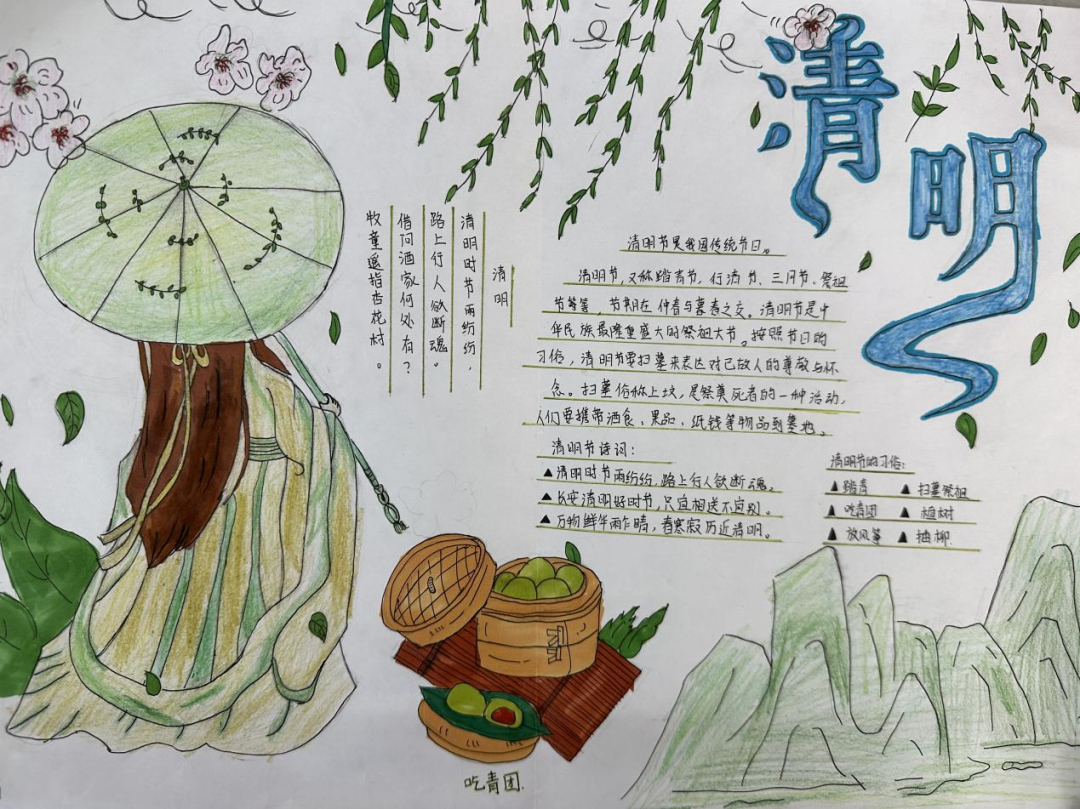 清明
清明
清明时节雨纷纷，
路上行人欲断魂。
借问酒家何处有？
牧童遥指杏花村。
清明节是我国传统节日。
清明节，又称踏青节、行清节、三月节、祭祖
节等等，节期在仲春与暮春之交。清明节是中
华民族最隆重盛大的祭祖大节。按照节日的
习俗，清明节要扫墓来表达对已故人的尊敬与怀
念。扫墓俗称上坟，是祭奠死者的一种活动，
人们要携带酒食、果品、纸钱等物品到墓地。
清明节诗词：
▲清明时节雨纷纷，路上行人欲断魂。
▲长安清明好时节，只宜相送不宜别。
▲万物鲜华雨乍晴，春寒寂历近清明。
清明节的习俗：
▲踏青 ▲扫墓祭祖
▲吃青团 ▲植树
▲放风筝 ▲插柳
吃青团